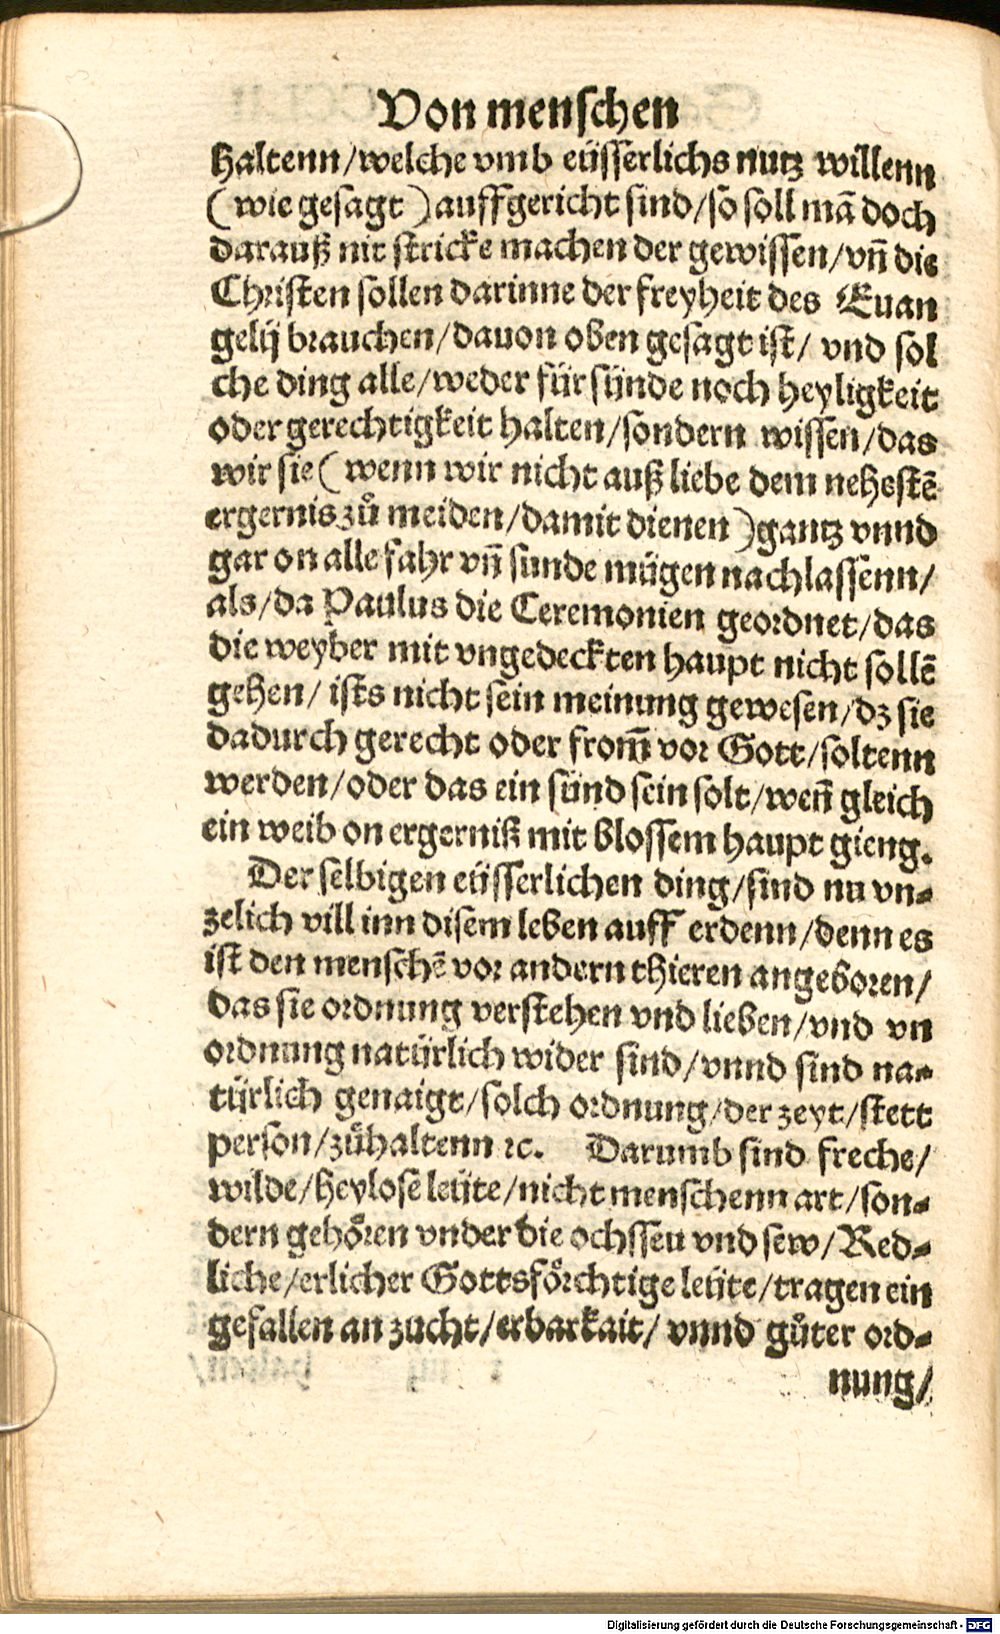 Von menschen
haltenn/welche vmb eüsserlichs nutz willenn
(wie gesagt) auffgericht sind/so soll mā doch
darauß nit stricke machen der gewissen/vñ die
Christen sollen darinne der freyheit des Euan
gelij brauchen/dauon oben gesagt ist/ vnd sol
che ding alle/weder für sünde noch heyligkeit
oder gerechtigkeit halten/sondern wissen/das
wir sie (wenn wir nicht auß liebe dem nehestē
ergernis zuͦ meiden/damit dienen) gantz vnnd
gar on alle fahr vñ sunde mügen nachlassenn/
als/da Paulus die Ceremonien geordnet/das
die weyber mit vngedeckten haupt nicht sollē
gehen/ ists nicht sein meinung gewesen/dz sie
dadurch gerecht oder from̃ vor Gott/soltenn
werden/oder das ein sünd sein solt/weñ gleich
ein weib on ergerniß mit blossem haupt gieng.
Der selbigen eüsserlichen ding/sind nu vn-
zelich vill inn disem leben auff erdenn/denn es
ist den menschē vor andern thieren angeboren/
das sie ordnung verstehen vnd lieben/vnd vn
ordnung natürlich wider sind/vnnd sind na-
türlich genaigt/solch ordnung/der zeyt/stett
person/zuͦhaltenn ꝛc. Darumb sind freche/
wilde/heylose leüte/nicht menschenn art/son-
dern gehoͤren vnder die ochssen vnd sew/Red-
liche/erlicher Gottsfoͤrchtige leüte/tragen ein
gefallen an zucht/erbarkait/ vnnd guͦter ord-
nung/
Digitalisierung gefördert durch die Deutsche Forschungsgemeinschaft - DFG